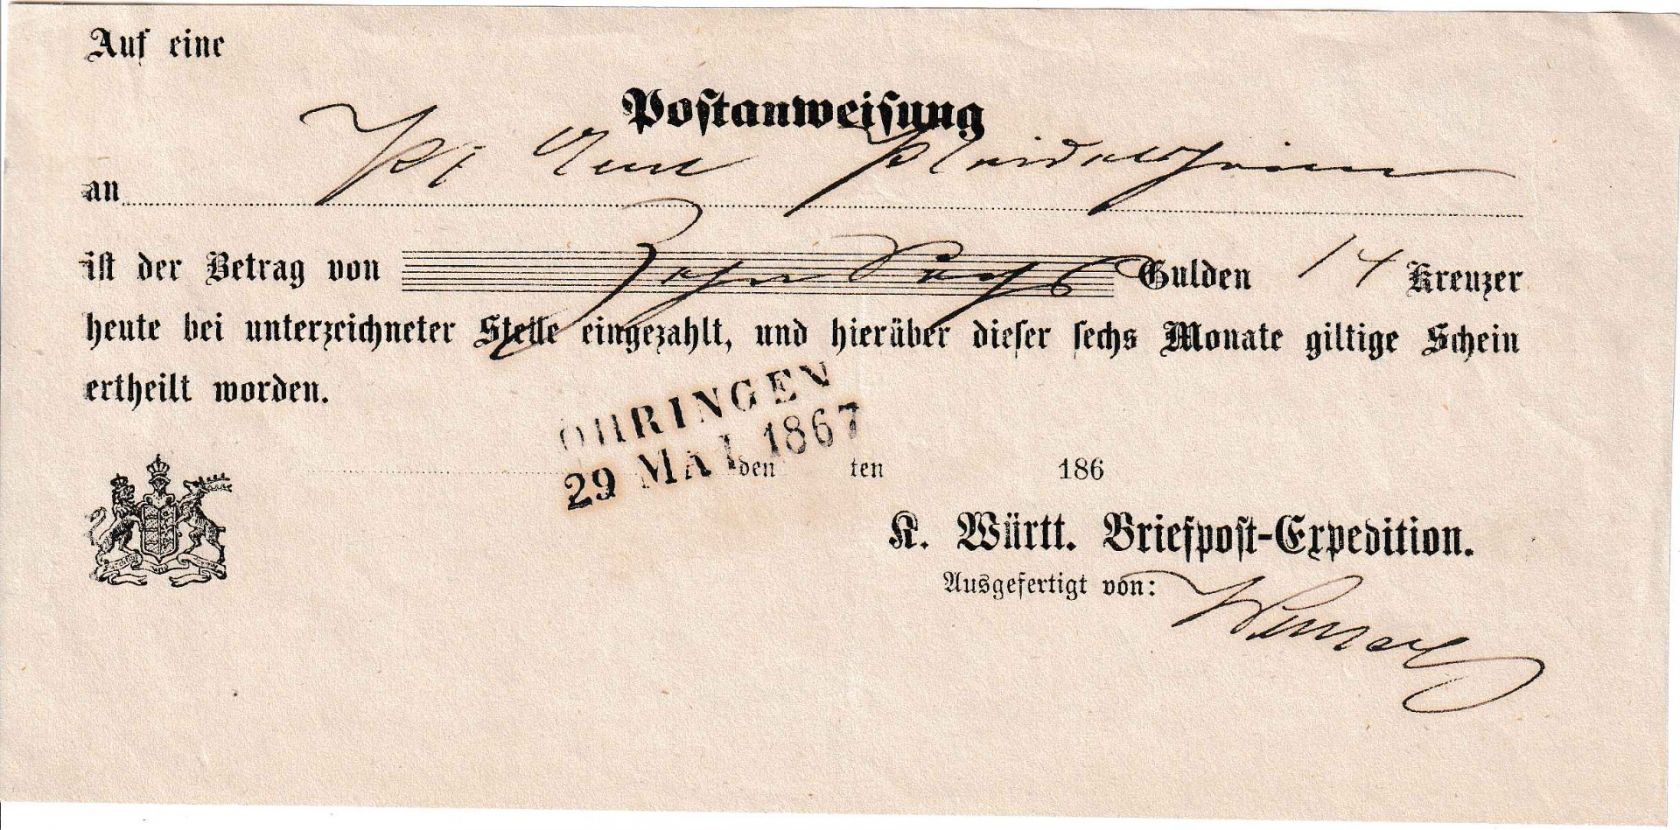 Auf eine
Postanweisung
an Pf Pleidelsheim
ist der Betrag von Zehn Sechs Gulden 14 Kreuzer
heute bei unterzeichneter Stelle eingezahlt, und hierüber dieser sechs Monate giltige Schein
ertheilt worden.
ÖHRINGEN
29 MAI 1867
den ten 186
K. Württ. Briefpost-Expedition.
Ausgefertigt von: